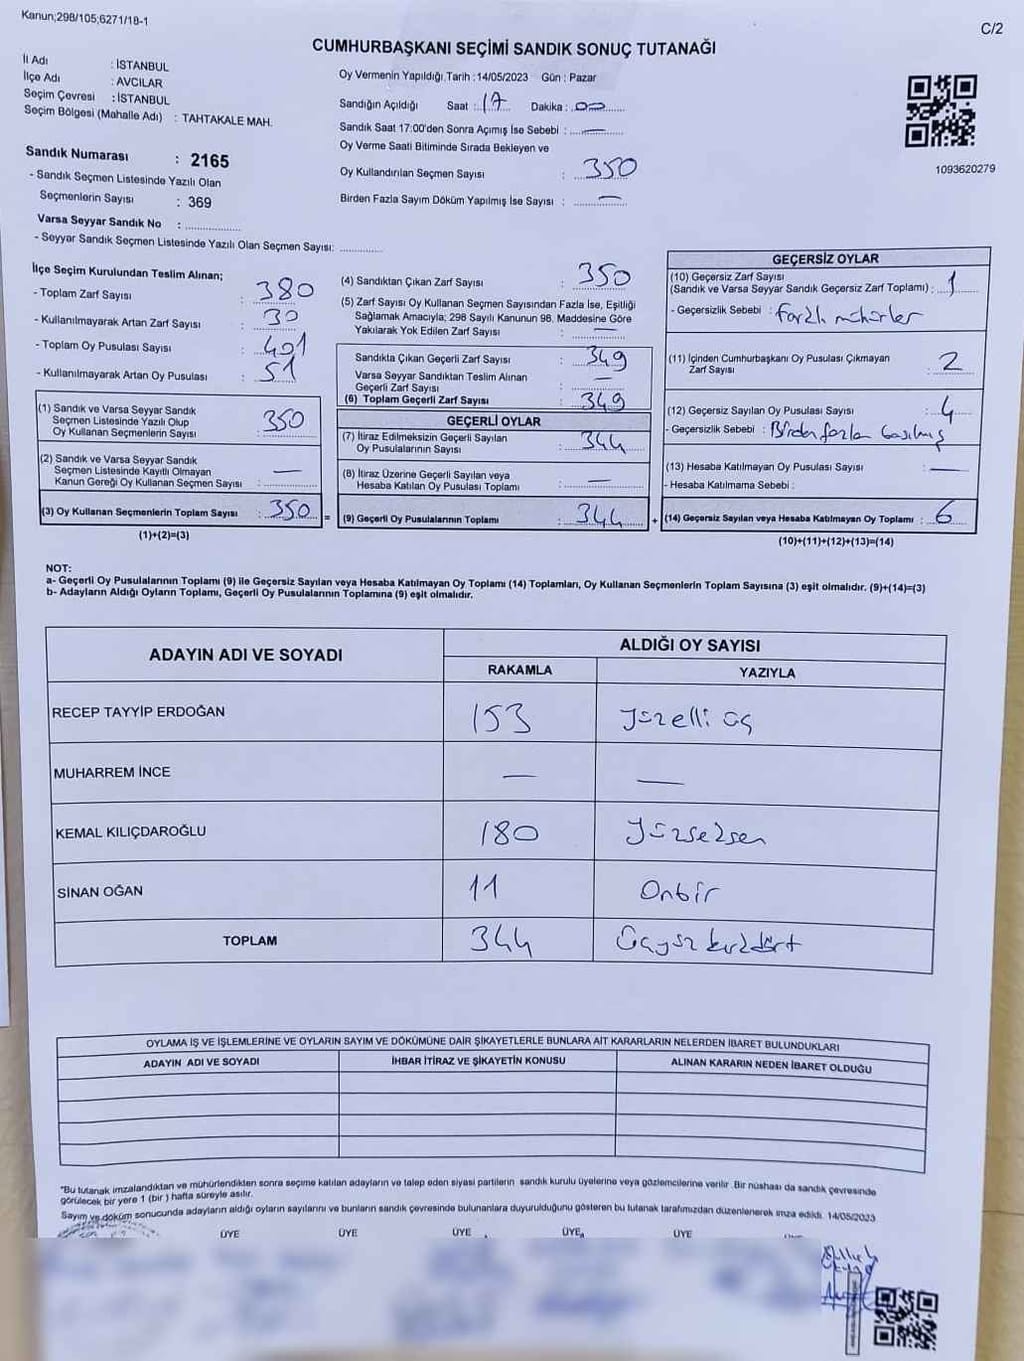 Kanun;298/105;6271/18-1
C/2
CUMHURBAŞKANI SEÇİMİ SANDIK SONUÇ TUTANAĞI
İl Adı : İSTANBUL
İlçe Adı : AVCILAR
Seçim Çevresi : İSTANBUL
Seçim Bölgesi (Mahalle Adı) : TAHTAKALE MAH.
Sandık Numarası : 2165
- Sandık Seçmen Listesinde Yazılı Olan
Seçmenlerin Sayısı : 369
Varsa Seyyar Sandık No :
- Seyyar Sandık Seçmen Listesinde Yazılı Olan Seçmen Sayısı:
Oy Vermenin Yapıldığı Tarih : 14/05/2023 Gün : Pazar
Sandığın Açıldığı Saat : 17 Dakika : 00
Sandık Saat 17:00'den Sonra Açımış İse Sebebi : —
Oy Verme Saati Bitiminde Sırada Bekleyen ve
Oy Kullandırılan Seçmen Sayısı : 350
Birden Fazla Sayım Döküm Yapılmış İse Sayısı : —
1093620279
İlçe Seçim Kurulundan Teslim Alınan;
- Toplam Zarf Sayısı : 380
- Kullanılmayarak Artan Zarf Sayısı : 30
- Toplam Oy Pusulası Sayısı : 401
- Kullanılmayarak Artan Oy Pusulası : 51
(1) Sandık ve Varsa Seyyar Sandık
Seçmen Listesinde Yazılı Olup
Oy Kullanan Seçmenlerin Sayısı : 350
(2) Sandık ve Varsa Seyyar Sandık
Seçmen Listesinde Kayıtlı Olmayan
Kanun Gereği Oy Kullanan Seçmen Sayısı : —
(3) Oy Kullanan Seçmenlerin Toplam Sayısı : 350 =
(1)+(2)=(3)
(4) Sandıktan Çıkan Zarf Sayısı : 350
(5) Zarf Sayısı Oy Kullanan Seçmen Sayısından Fazla İse, Eşitliği
Sağlamak Amacıyla; 298 Sayılı Kanunun 98. Maddesine Göre
Yakılarak Yok Edilen Zarf Sayısı : —
Sandıkta Çıkan Geçerli Zarf Sayısı : 349
Varsa Seyyar Sandıktan Teslim Alınan
Geçerli Zarf Sayısı : —
(6) Toplam Geçerli Zarf Sayısı : 349
GEÇERLİ OYLAR
(7) İtiraz Edilmeksizin Geçerli Sayılan
Oy Pusulalarının Sayısı : 344
(8) İtiraz Üzerine Geçerli Sayılan veya
Hesaba Katılan Oy Pusulası Toplamı : —
(9) Geçerli Oy Pusulalarının Toplamı : 344 +
GEÇERSİZ OYLAR
(10) Geçersiz Zarf Sayısı
(Sandık ve Varsa Seyyar Sandık Geçersiz Zarf Toplamı) : 1
- Geçersizlik Sebebi : farzlı mühürler
(11) İçinden Cumhurbaşkanı Oy Pusulası Çıkmayan
Zarf Sayısı : 2
(12) Geçersiz Sayılan Oy Pusulası Sayısı : 4
- Geçersizlik Sebebi : Birden fazla basılmış
(13) Hesaba Katılmayan Oy Pusulası Sayısı : —
- Hesaba Katılmama Sebebi :
(14) Geçersiz Sayılan veya Hesaba Katılmayan Oy Toplamı : 6
(10)+(11)+(12)+(13)=(14)
NOT:
a- Geçerli Oy Pusulalarının Toplamı (9) ile Geçersiz Sayılan veya Hesaba Katılmayan Oy Toplamı (14) Toplamları, Oy Kullanan Seçmenlerin Toplam Sayısına (3) eşit olmalıdır. (9)+(14)=(3)
b- Adayların Aldığı Oyların Toplamı, Geçerli Oy Pusulalarının Toplamına (9) eşit olmalıdır.
ADAYIN ADI VE SOYADI
ALDIĞI OY SAYISI
RAKAMLA YAZIYLA
RECEP TAYYİP ERDOĞAN 153 Yüzelli üç
MUHARREM İNCE — —
KEMAL KILIÇDAROĞLU 180 Yüzseksen
SİNAN OĞAN 11 Onbir
TOPLAM 344 Üçyüz kırkdört
OYLAMA İŞ VE İŞLEMLERİNE VE OYLARIN SAYIM VE DÖKÜMÜNE DAİR ŞİKAYETLERLE BUNLARA AİT KARARLARIN NELERDEN İBARET BULUNDUKLARI
ADAYIN ADI VE SOYADI İHBAR İTİRAZ VE ŞİKAYETİN KONUSU ALINAN KARARIN NEDEN İBARET OLDUĞU
*Bu tutanak imzalandıktan ve mühürlendikten sonra seçime katılan adayların ve talep eden siyasi partilerin sandık kurulu üyelerine veya gözlemcilerine verilir. Bir nüshası da sandık çevresinde
görülecek bir yere 1 (bir) hafta süreyle asılır.
Sayım ve döküm sonucunda adayların aldığı oyların sayılarını ve bunların sandık çevresinde bulunanlara duyurulduğunu gösteren bu tutanak tarafımızdan düzenlenerek imza edildi. 14/05/2023
ÜYE ÜYE ÜYE ÜYE ÜYE